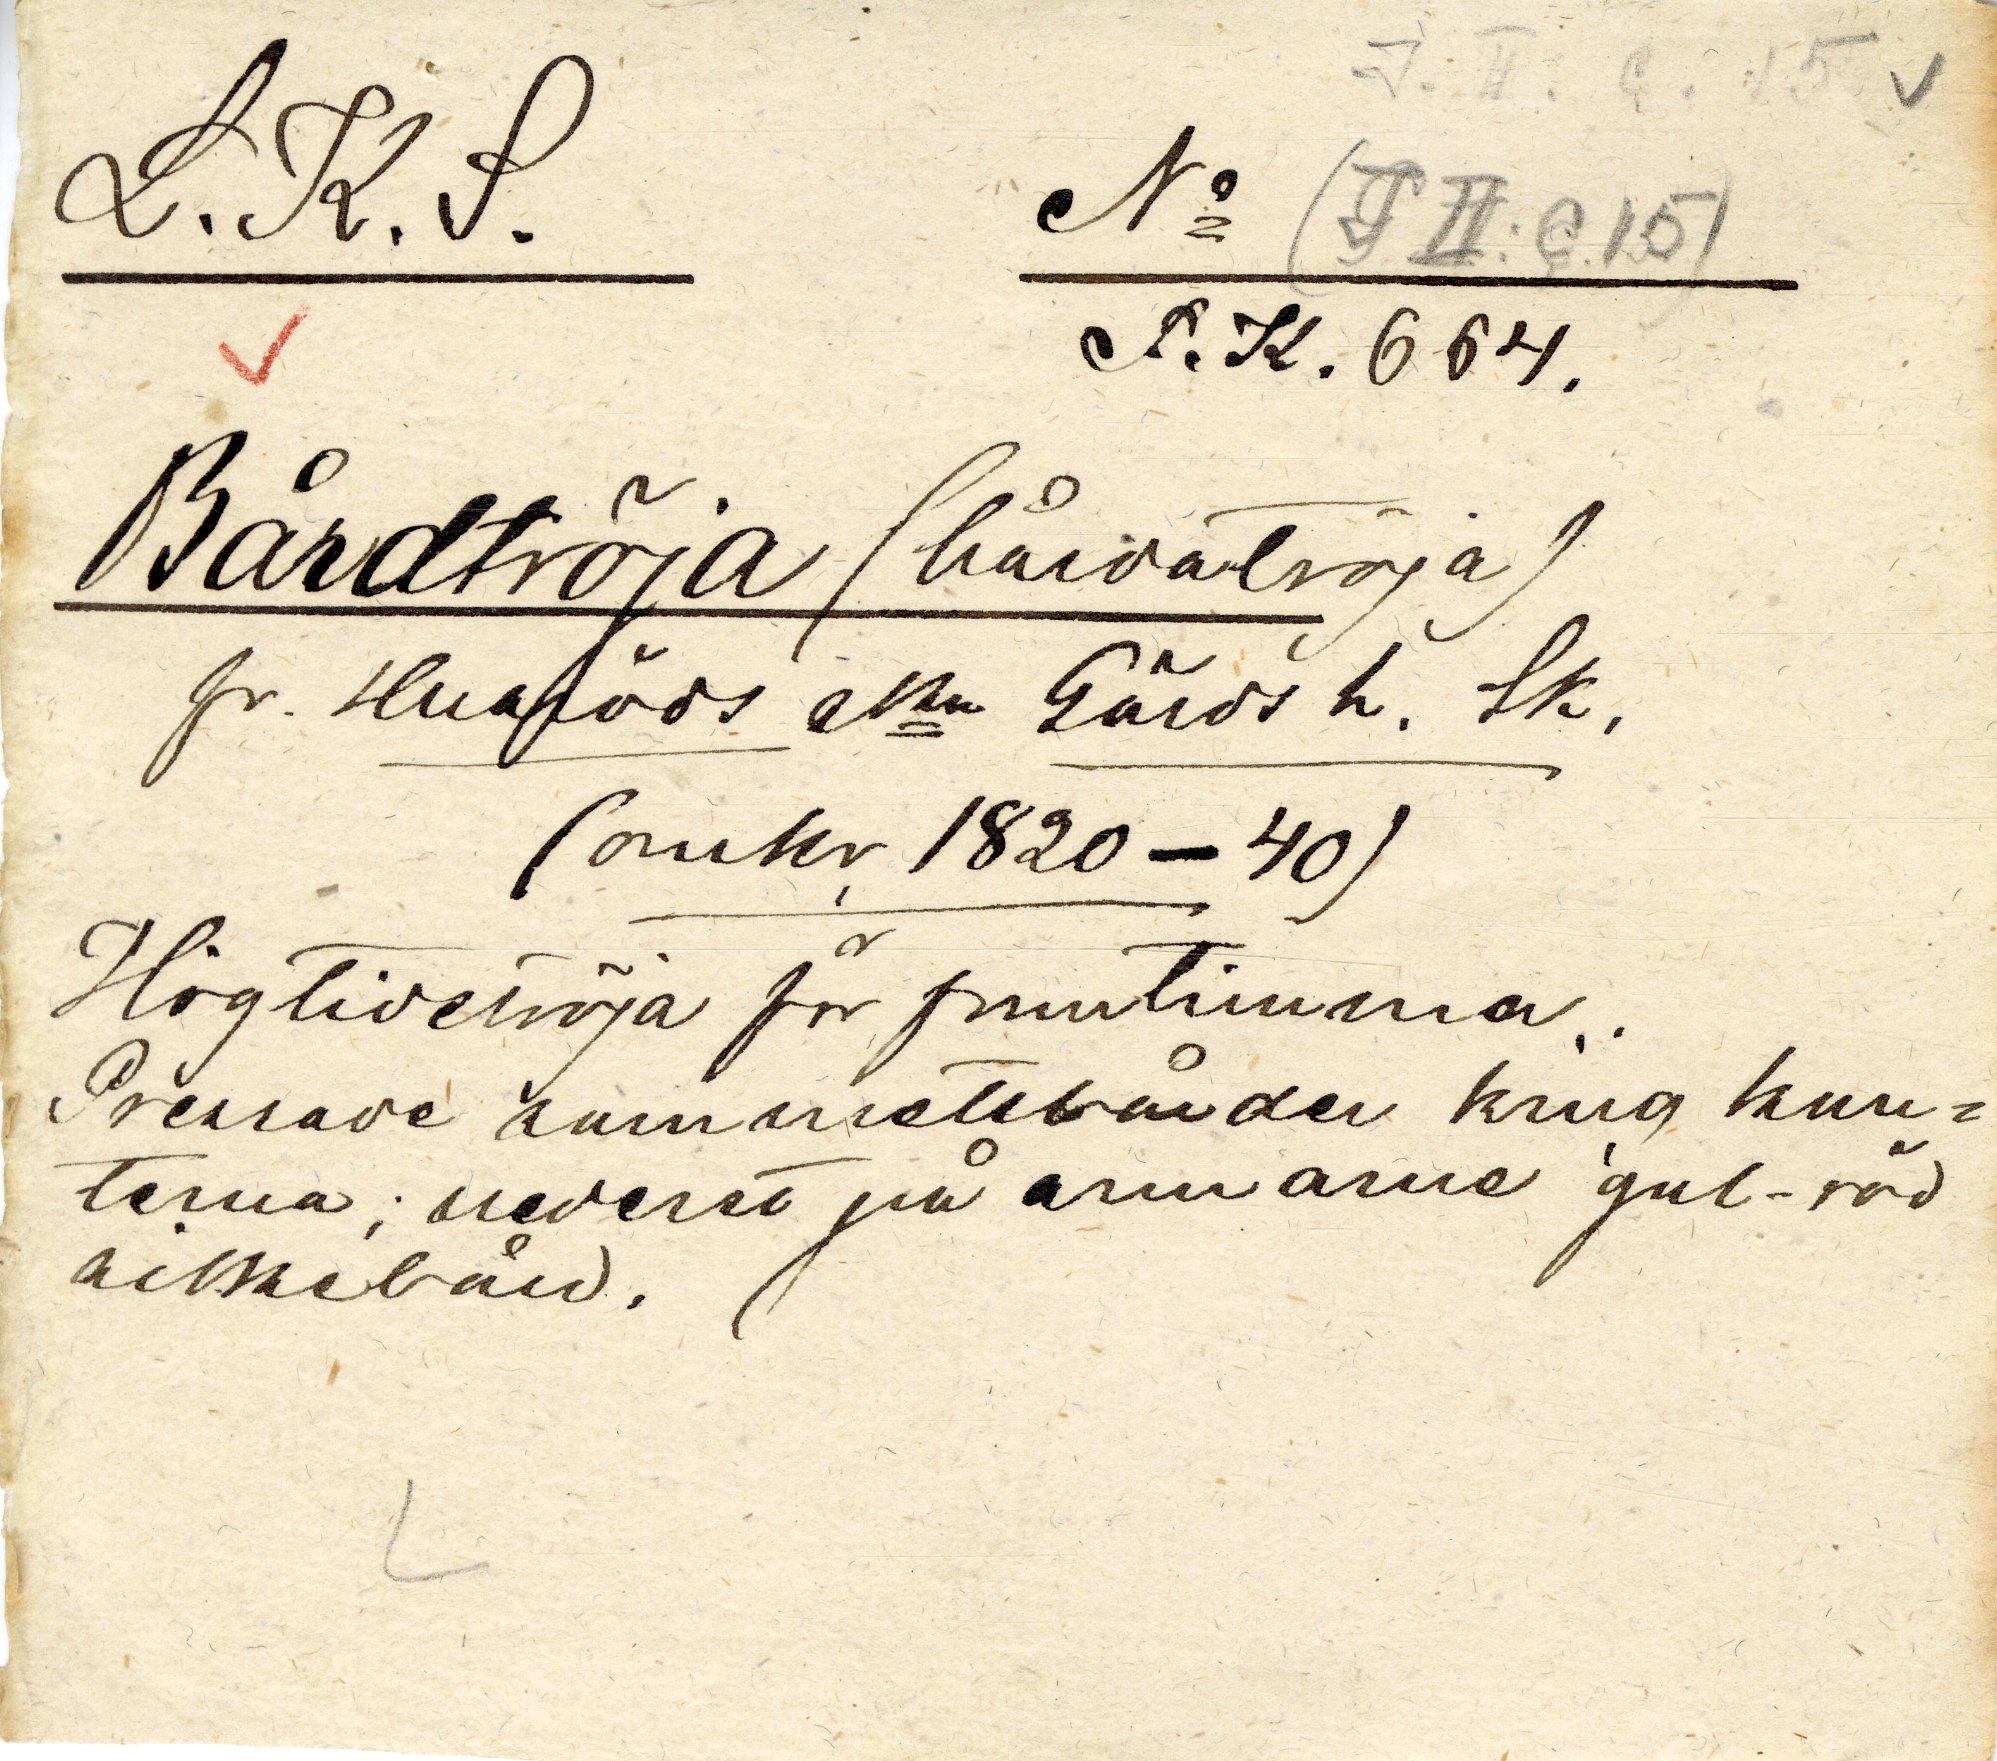 J. II. c. 15 ✓
L.K.S.
No (J II. C. 15)
✓
S.K. 664.
Bårdtröja (bårdatröja)
fr. Huaröds skn Gärds h. Sk.
(omkr. 1820–40)
Högtidströja för fruntimma.
Pressade sammetsbårder kring kan=
terna; nederst på armarne gul-röd
silkebård.